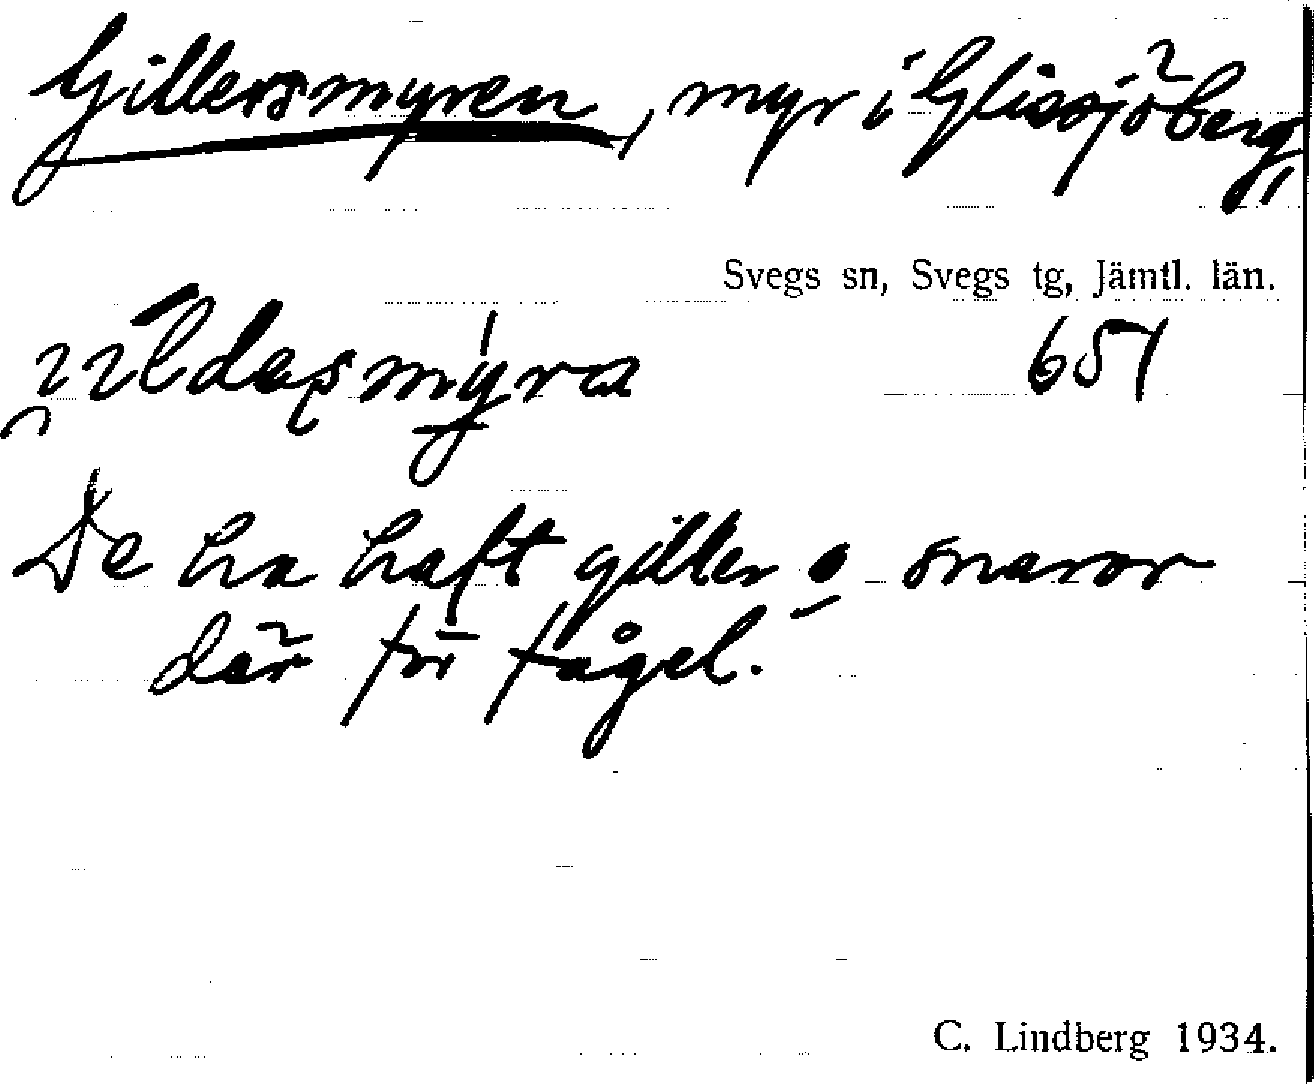 Gillersmyren, myr i Glissjöberg,
Svegs sn, Svegs tg, Jämtl. län.
651
De ha haft giller o snaror
där för fågel.
C. Lindberg 1934.